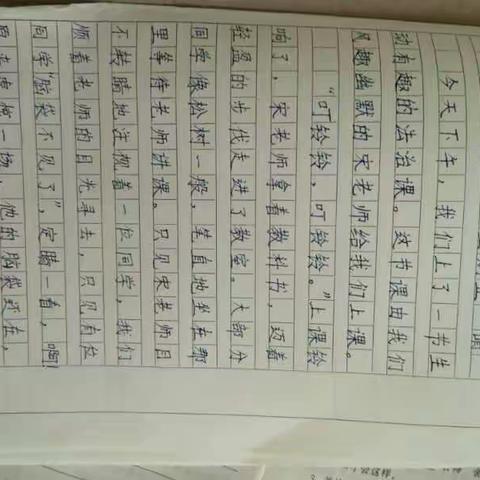 今天下午，我们上了一节生
动有趣的法治课。这节课由我们
风趣幽默的宋老师给我们上课。
“叮铃铃，叮铃铃。”上课铃
响了，宋老师拿着教科书，迈着
轻盈的步伐走进了教室。大部分
同学像松树一般，笔直地坐在那
里等待老师讲课。只见宋老师目
不转睛地注视着一位同学，我们
顺着老师的目光寻去，只见有位
同学“脑袋不见了”，定睛一看，啊！
他的脑袋还在，